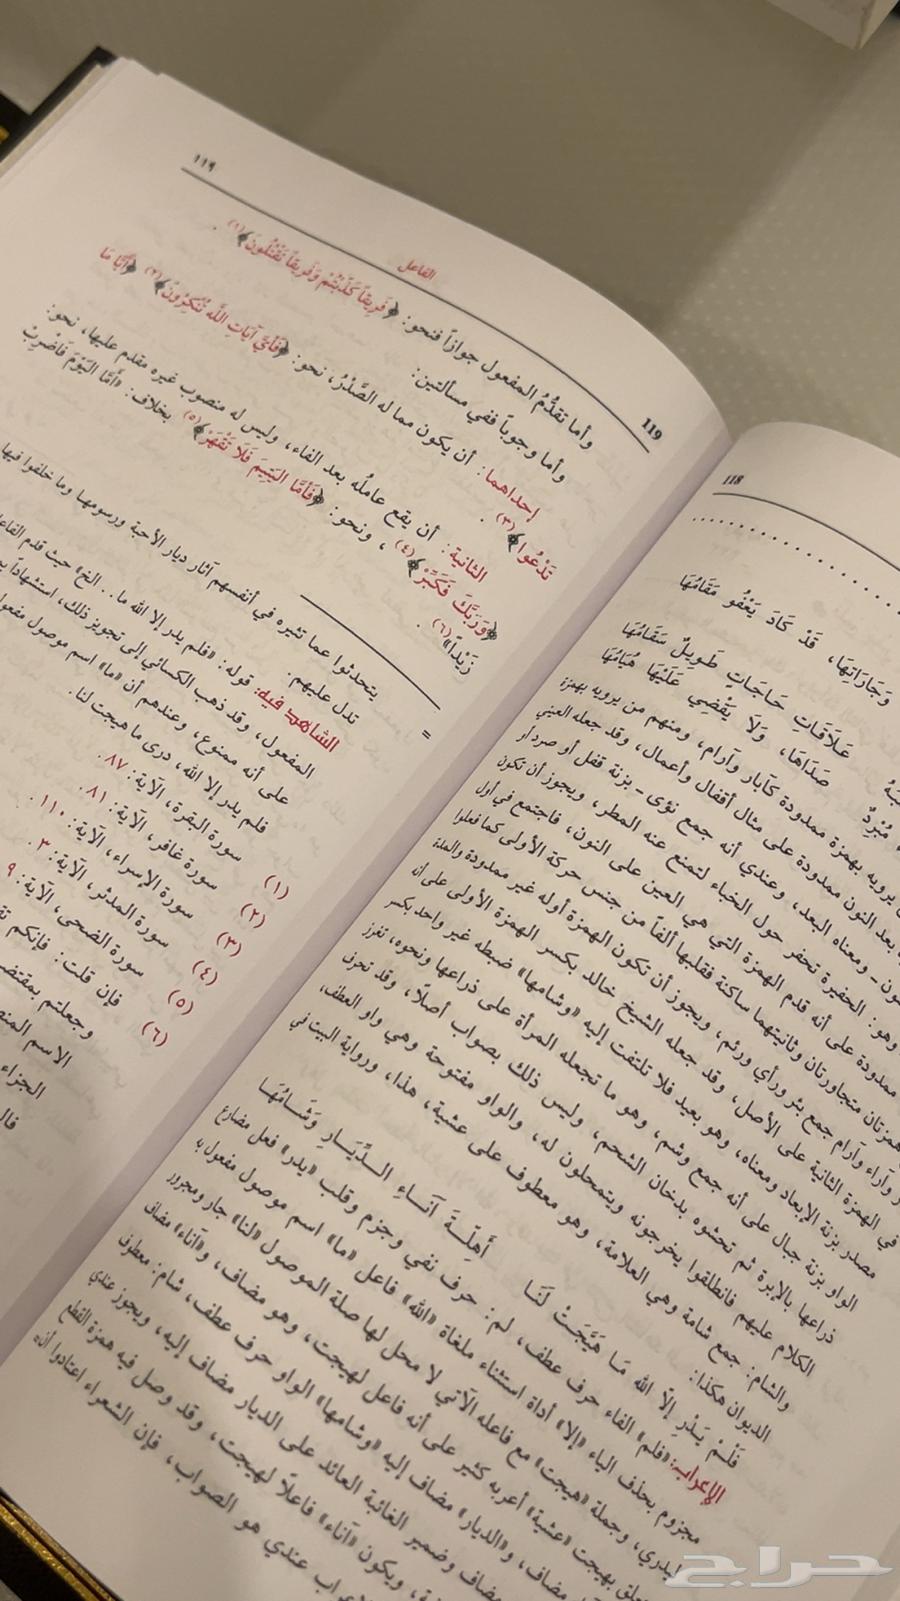 118
وَجَارَاتِهَا، قَدْ كَادَ يَعْفُو مَقَامُهَا
عَلَاقَاتِ حَاجَاتٍ طَوِيلٌ سَقَامُهَا
صَدَاهَا، وَلَا يَقْضِي عَلَيْهَا هُيَامُهَا
يرويه بهمزة ممدودة كآبار وآرام، ومنهم من يرويه بهمزة
بعد النون ممدودة على مثال أقفال وأعمال، وقد جعله العيني
ومعناه البعد، وعندي أنه جمع نؤى - بزنة قفل أو صرد أو
وهو: الحفيرة تحفر حول الخباء لتمنع عنه المطر، ويجوز أن تكون
ممدودة على أنه قدم الهمزة التي هي العين على النون، فاجتمع في أول
همزتان متجاورتان وثانيتهما ساكنة فقلبها ألفاً من جنس حركة الأولى كما فعلوا
وآراء وآرام جمع بئر ورأي ورئم، ويجوز أن تكون الهمزة أوله غير ممدودة والمدة
في الهمزة الثانية على الأصل، وقد جعله الشيخ خالد بكسر الهمزة الأولى على أن
مصدر بزنة الإبعاد ومعناه، وهو بعيد فلا تلتفت إليه «وشامها» ضبطه غير واحد بكسر
الواو بزنة جبال على أنه جمع وشم، وهو ما تجعله المرأة على ذراعها ونحوه، تغرز
ذراعها بالإبرة ثم تحشوه بدخان الشحم، وليس ذلك بصواب أصلًا، وقد تحرف
الكلام عليهم فانطلقوا يخرجونه ويتمحلون له، والواو مفتوحة وهي واو العطف،
والشام: جمع شامة وهي العلامة، وهو معطوف على عشية، هذا، ورواية البيت في
الديوان هكذا:
فَلَمْ يَدْرِ إلَّا الله مَا هَيَّجَتْ لَنَا أَهِلَّةَ آنَاءِ الدِّيَارِ وَشَامُهَا
الإعراب: «فلم» الفاء حرف عطف، لم: حرف نفي وجزم وقلب «يدر» فعل مضارع
مجزوم بحذف الياء «إلا» أداة استثناء ملغاة «الله» فاعل «ما» اسم موصول مفعول به
ليدري، وجملة «هيجت» مع فاعله الآتي لا محل لها صلة الموصول «لنا» جار ومجرور
بهيجت «عشية» أعربه كثير على أنه فاعل لهيجت، وهو مضاف، و«آناء» مضاف
مضاف، و«الديار» مضاف إليه «وشامها» الواو حرف عطف، شام: معطوف
مضاف وضمير الغائبة العائد على الديار مضاف إليه، ويجوز عندي
ويكون «آناء» فاعلًا لهيجت، وقد وصل فيه همزة القطع
عندي هو الصواب، فإن الشعراء اعتادوا أن
١١٩
الفاعل
119
وأما تقدُّمُ المفعول جوازاً فنحو: ﴿فَرِيقاً كَذَّبْتُمْ وَفَرِيقاً تَقْتُلُونَ﴾(١).
وأما وجوباً ففي مسألتين:
إحداهما: أن يكون مما له الصَّدْرُ، نحو: ﴿فَأَيَّ آيَاتِ اللَّهِ تُنْكِرُونَ﴾(٢) ﴿أَيًّا مَا
تَدْعُوا﴾(٣).
الثانية: أن يقع عاملُه بعد الفاء، وليس له منصوب غيره مقدم عليها، نحو:
﴿وَرَبَّكَ فَكَبِّرْ﴾(٤)، ونحو: ﴿فَأَمَّا الْيَتِيمَ فَلَا تَقْهَرْ﴾(٥) بخلاف: «أَمَّا الْيَوْمَ فَاضْرِبْ
زَيْداً»(٦).
= يتحدثوا عما تثيره في أنفسهم آثار ديار الأحبة ورسومها وما خلفوا فيها
تدل عليهم.
الشاهد فيه: قوله: «فلم يدر إلا الله ما.. الخ» حيث قدم الفاعل
المفعول، وقد ذهب الكسائي إلى تجويز ذلك، استشهاداً
على أنه ممنوع، وعندهم أن «ما» اسم موصول مفعول
فلم يدر إلا الله، درى ما هيجت لنا.
(١) سورة البقرة، الآية: ٨٧.
(٢) سورة غافر، الآية: ٨١.
(٣) سورة الإسراء، الآية: ١١٠.
(٤) سورة المدثر، الآية: ٣.
(٥) سورة الضحى، الآية: ٩
(٦) فإن قلت: فإنكم
وجعلتم بمقتضى
الاسم
الجزاء
حراج